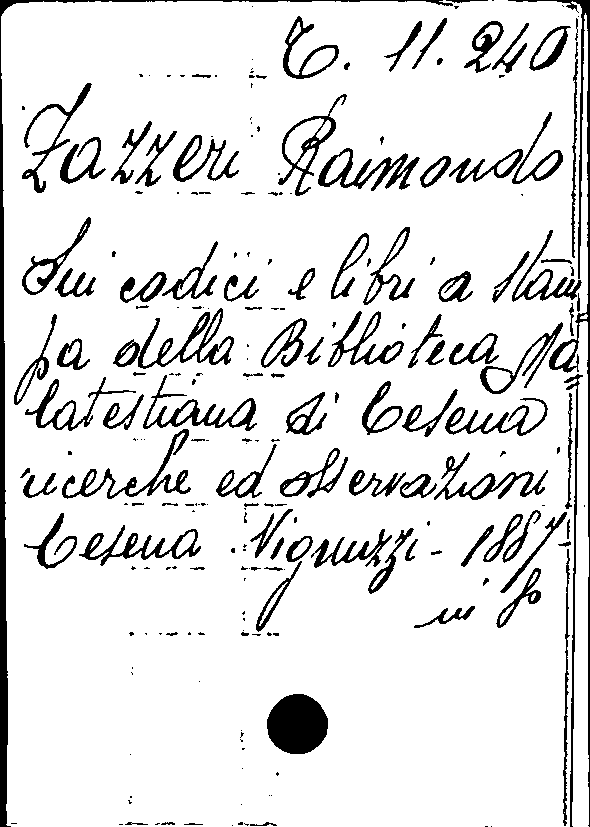 T. 11. 240
Zazzeri Raimondo
Sui codici e libri a stam
pa della Biblioteca Ma=
latestiana di Cesena
ricerche ed osservazioni
Cesena Vignuzzi - 1887
in 8º